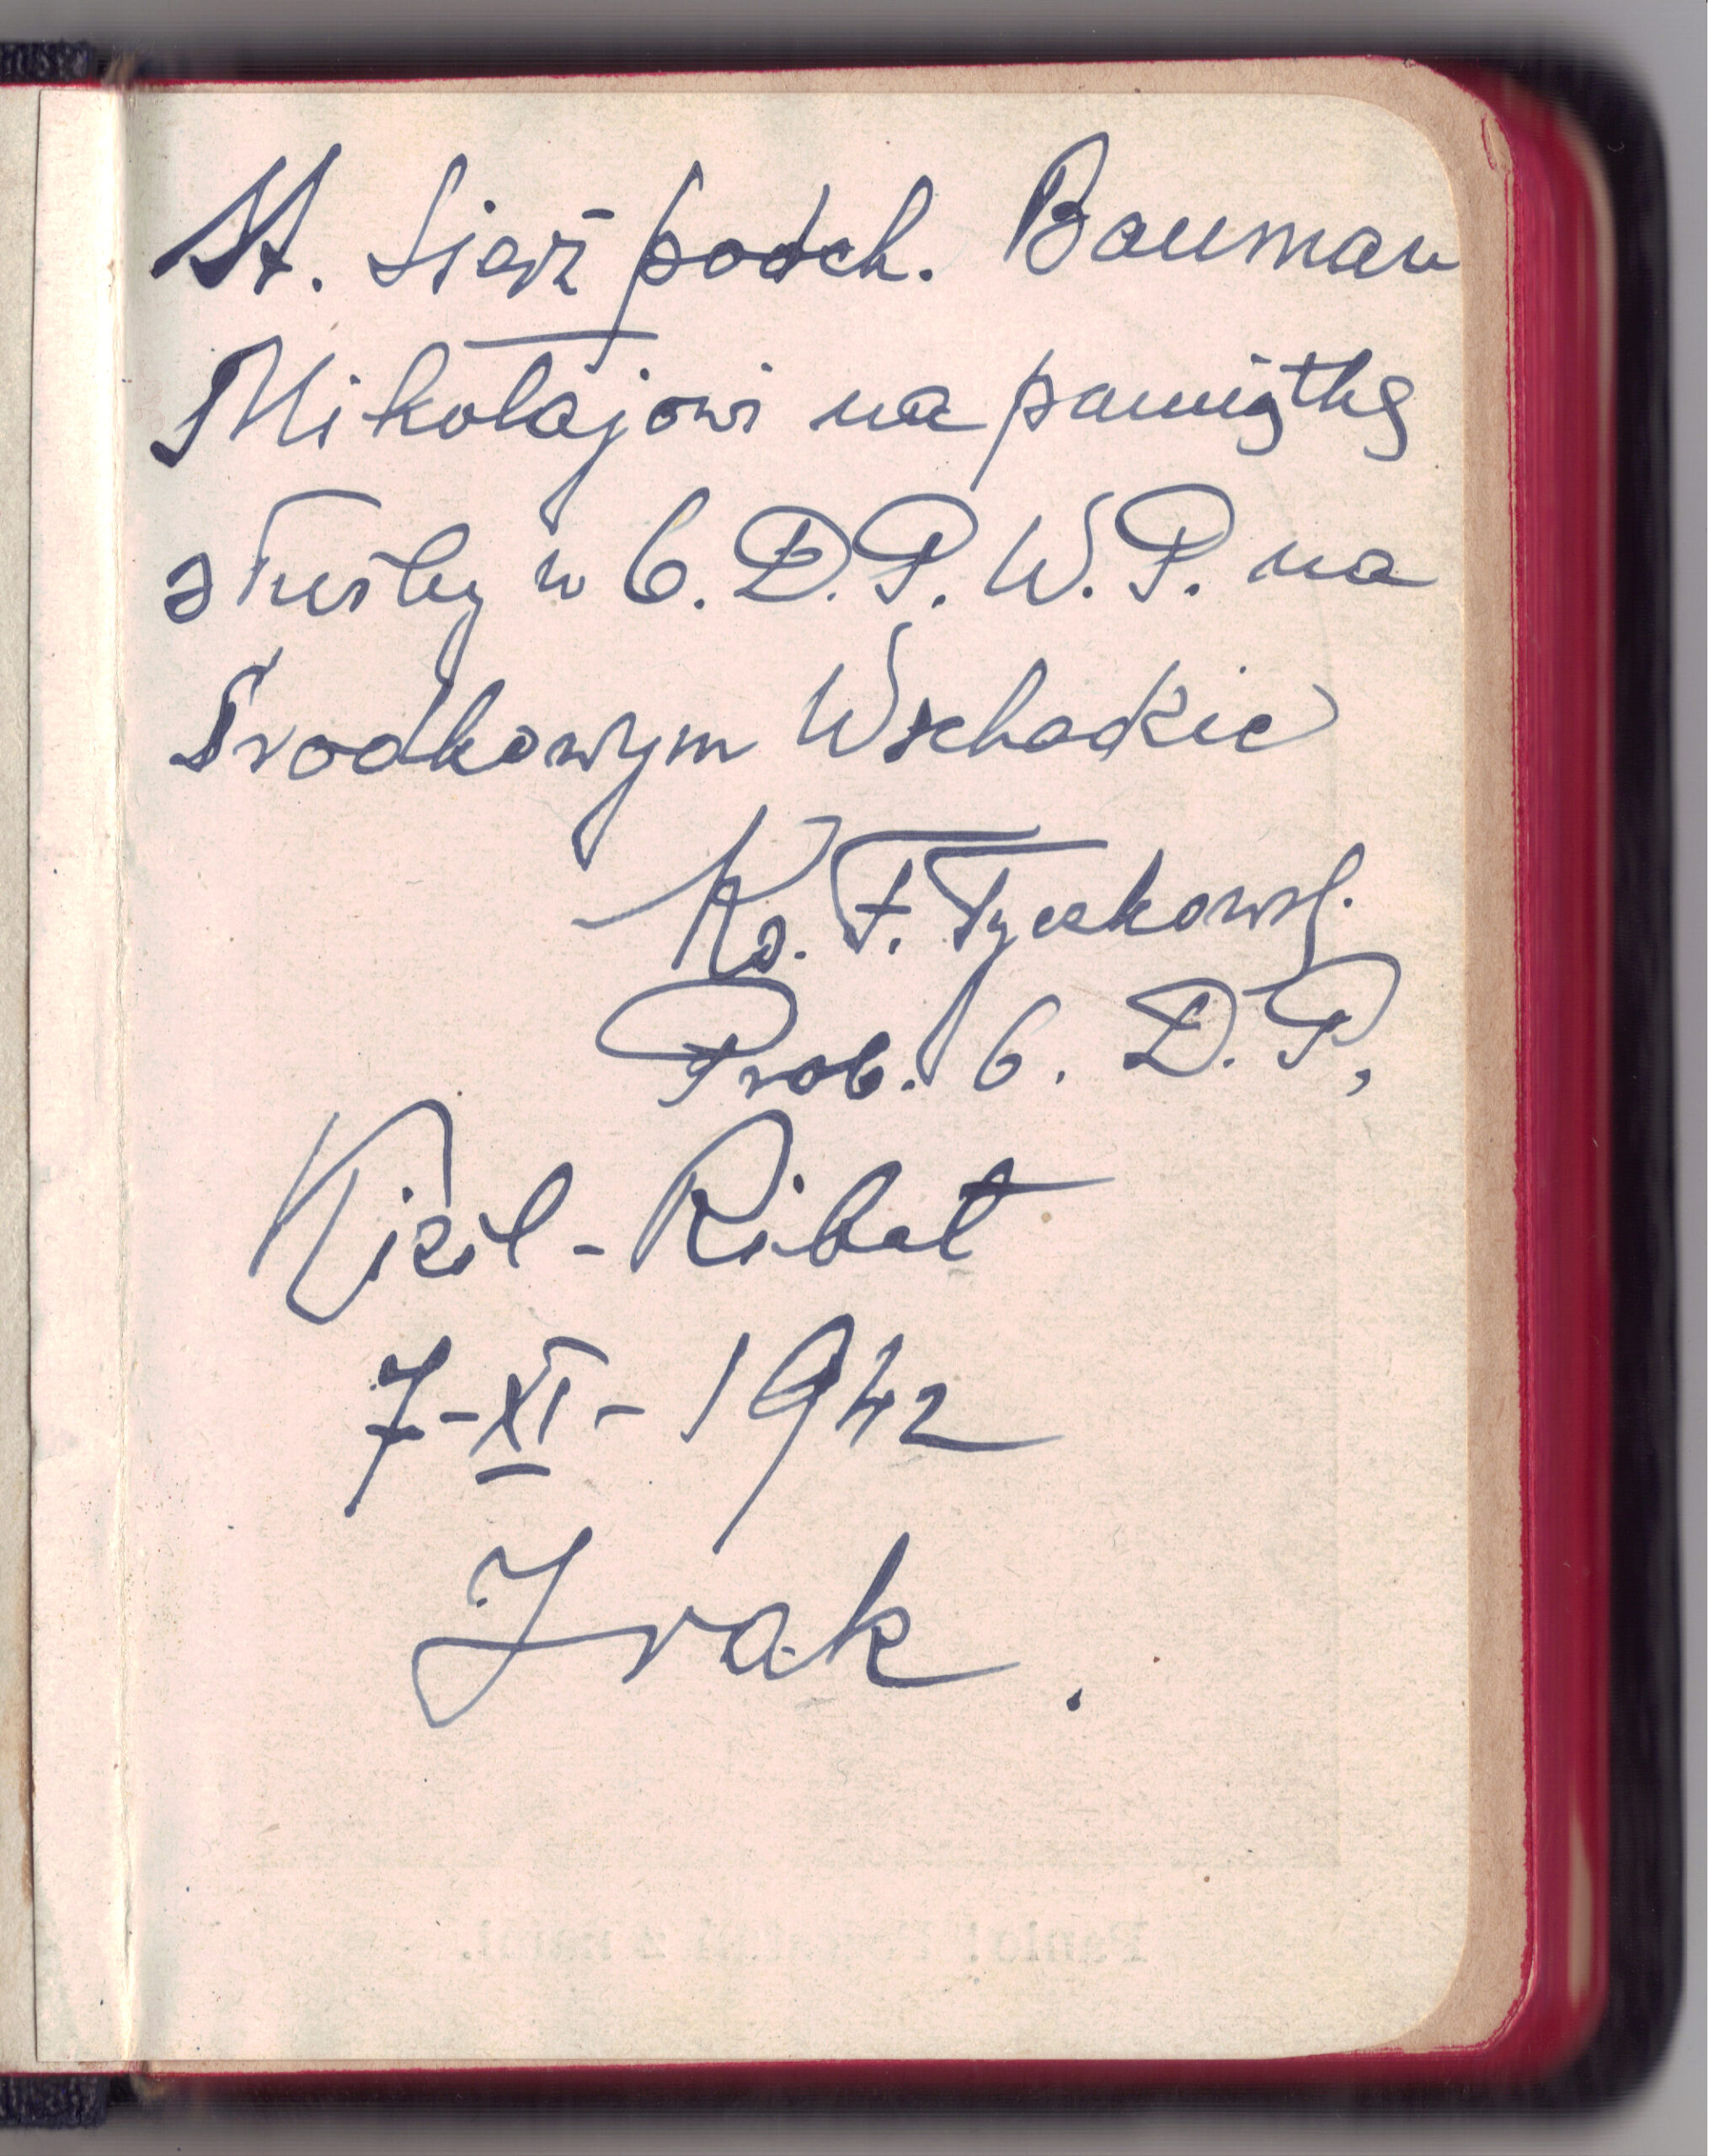 St. Sierż podch. Bauman
Mikołajowi na pamiątkę
służby w 6. D.P. W.P. na
Środkowym Wschodzie
Ks. F. Tyczkowsk.
Prob. 6. D.P.
Kizil-Ribat
7-XI-1942
Irak.